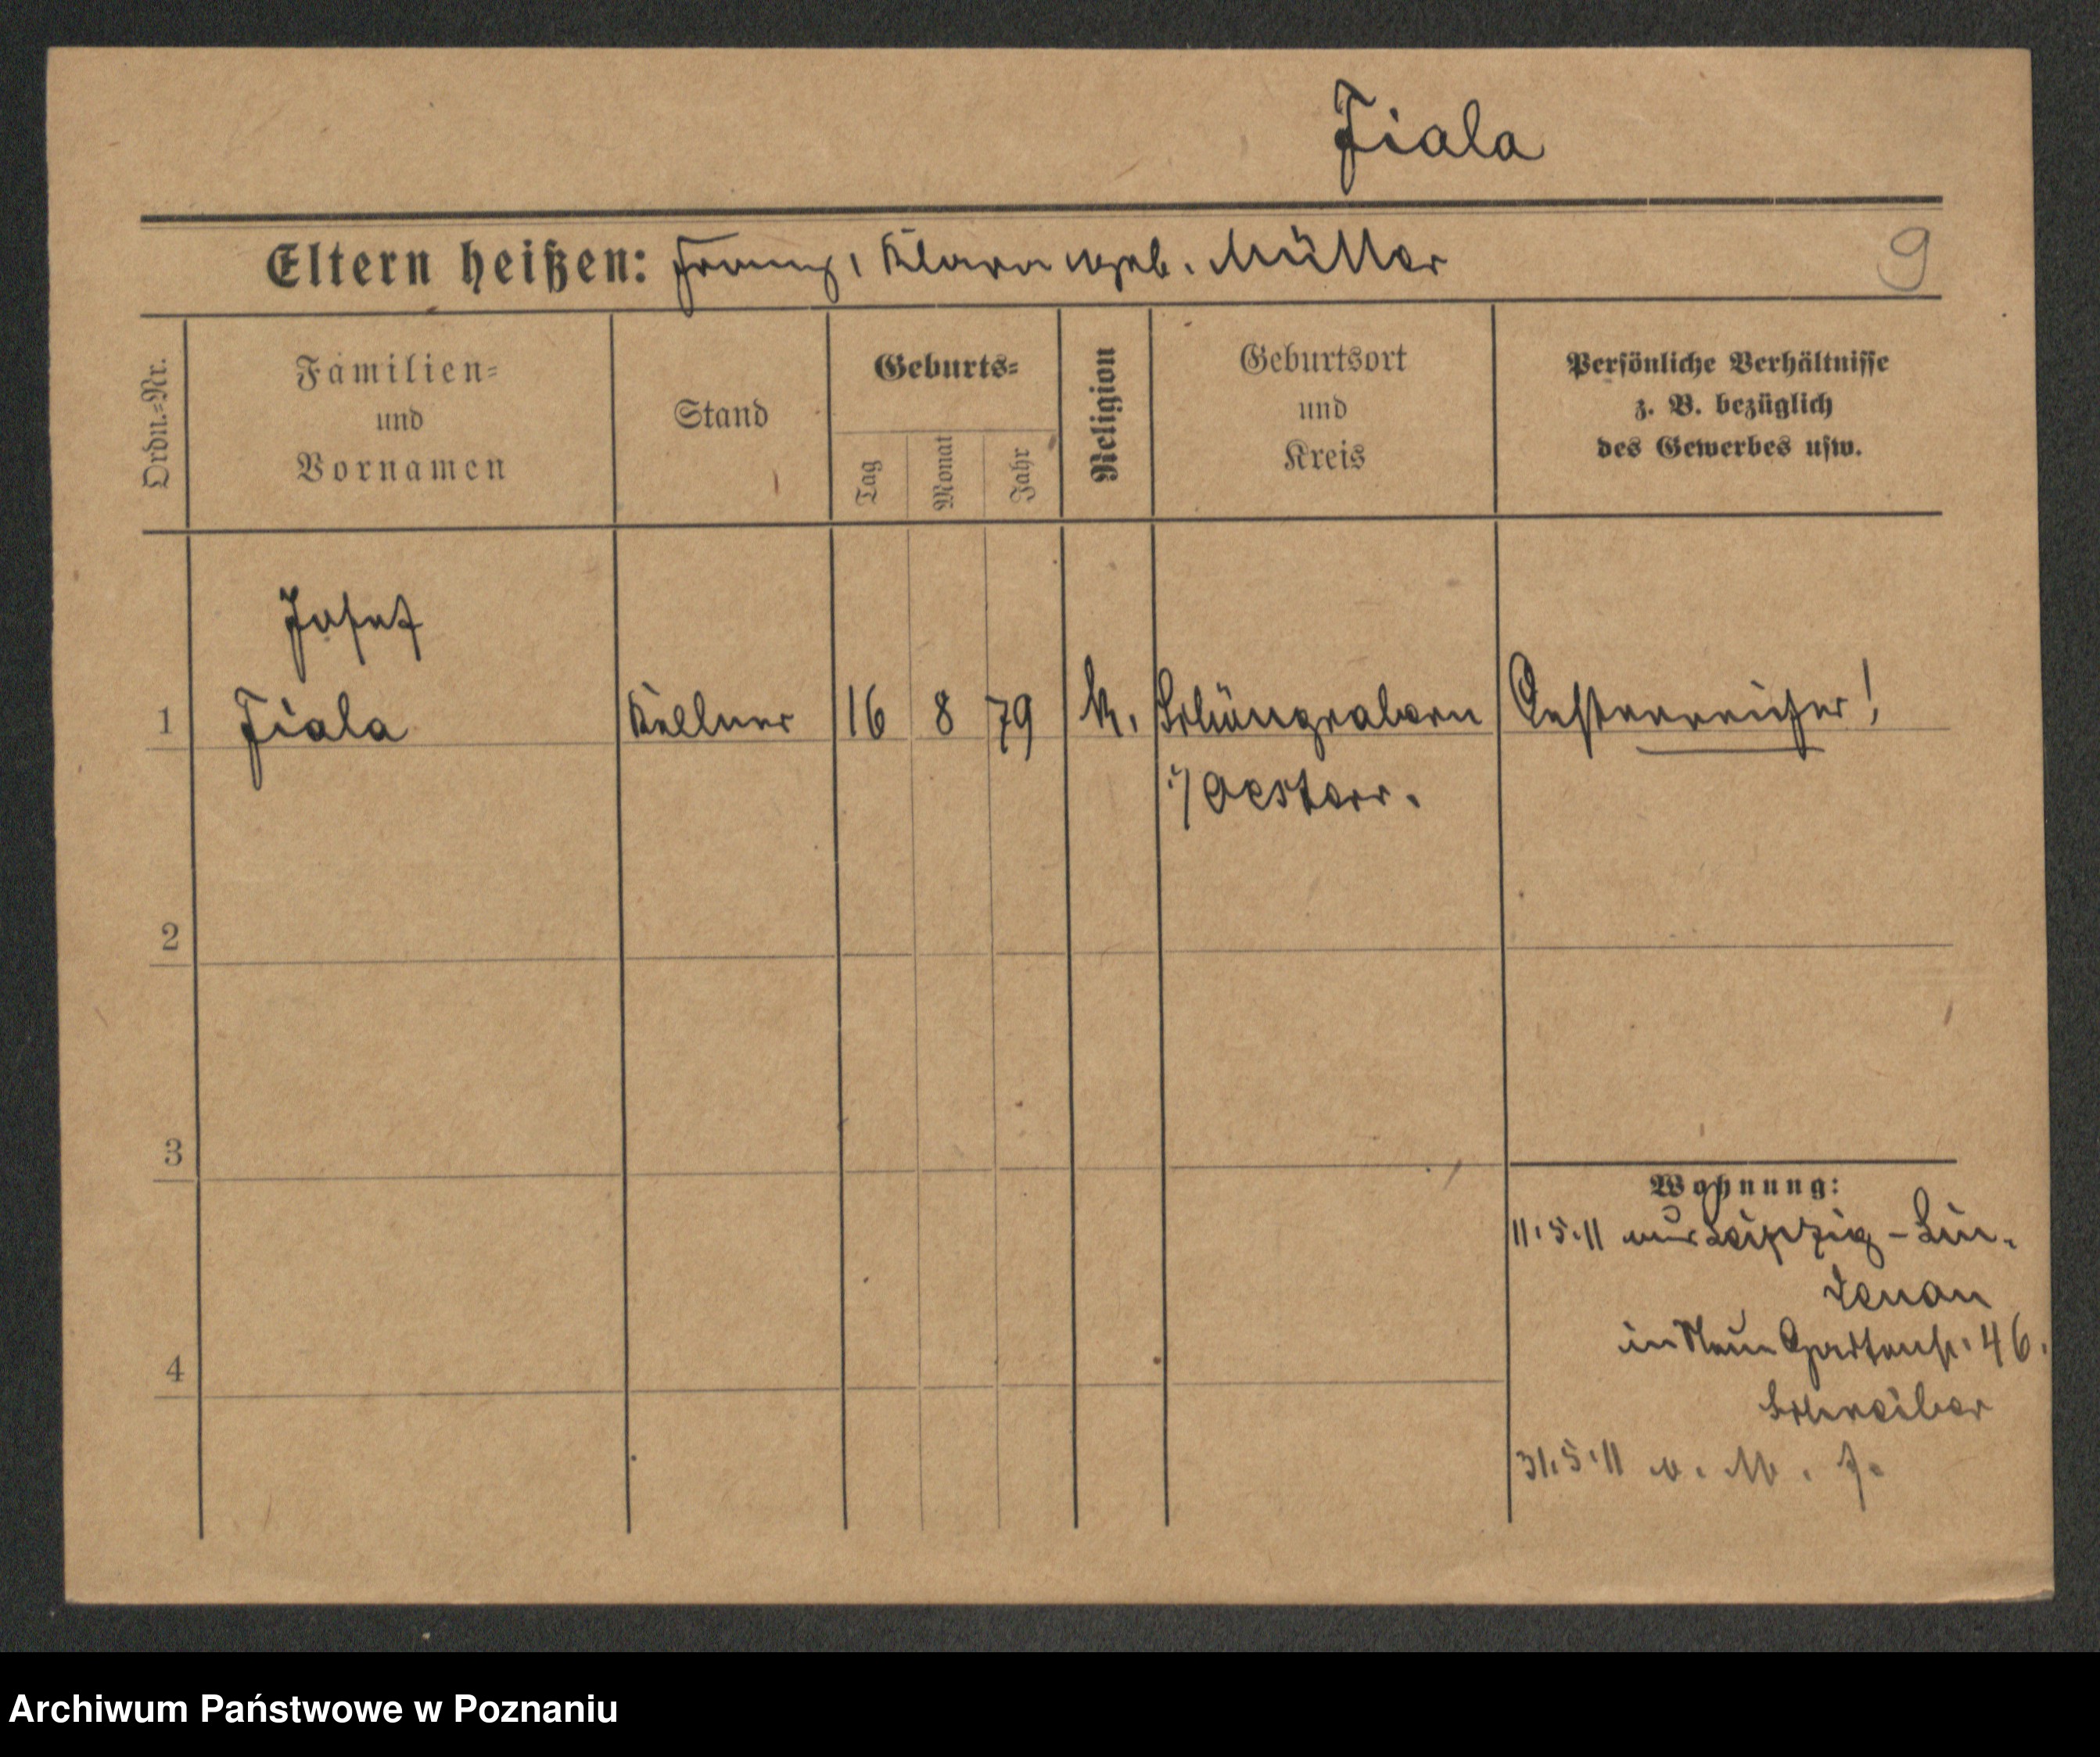 Fiala
Eltern heißen: Franz, Klara geb. Müller
9
Ordn.=Nr.
Familien=
und
Vornamen
Stand
Geburts=
Tag
Monat
Jahr
Religion
Geburtsort
und
Kreis
Persönliche Verhältnisse
z. B. bezüglich
des Gewerbes usw.
Josef
1 Fiala Kellner 16 8 79 k. Schöngrabern Oesterreicher!
i/Oesterr.
2
3
4
Wohnung:
11.5.11 aus Leipzig-Lin-
denau
in Neue Gartenstr. 46.
Schreiber
31.5.11
Archiwum Państwowe w Poznaniu